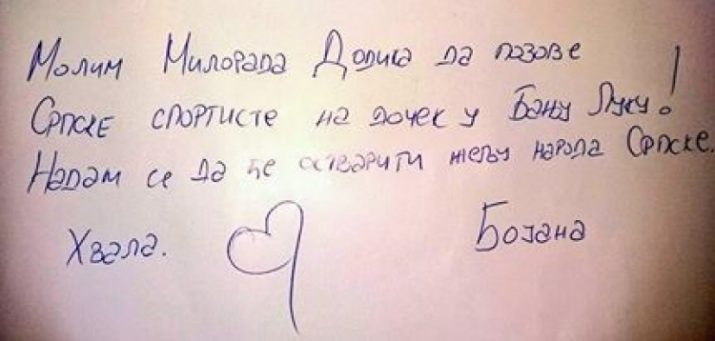 Молим Милорада Додика да позове
Српске спортисте на дочек у Бању Луку!
Надам се да ће остварити жељу народа Српске.
Хвала. Бојана